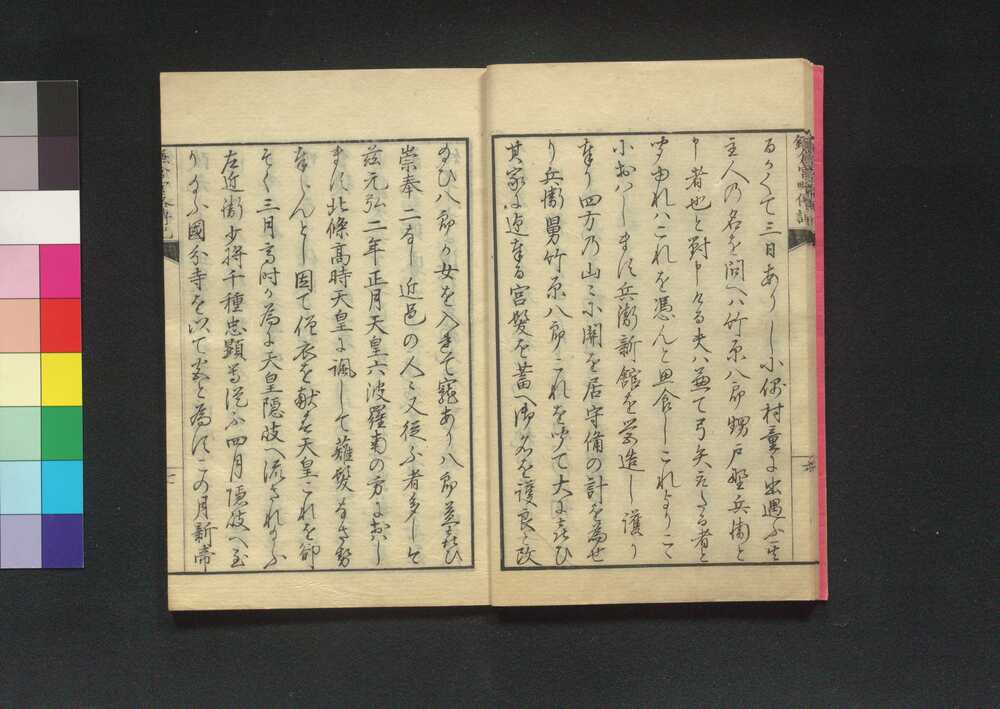 るゝて三日ありし小偶村童に出遇ふ其
主人の名を問へハ竹原八郎甥戸野兵衛と
申者也と對申ける夫ハ兼て弓矢とるる者と
聞由れハこれを憑んと思食しこれよりこて
小おハしま須兵衛新館を営造し護り
奉り四方乃山々小關を居守備の計を為せ
り兵衛舅竹原八郎これを聞て大に喜ひ
其家に迎奉る宮髪を蓄へ御名を護良と改
給ひ八郎の女を入奉て寵あり八郎益喜ひ
崇奉二なし近邑の人々又従ふ者多しと
茲元弘二年正月天皇六波羅南の方におハし
ま須北條高時天皇に諷して薙髪なさ勢
奉らんとし因て僧衣を献を天皇これを卻
そく三月高時か為に天皇隠岐へ流されたまふ
左近衛少将千種忠顕等従ふ四月隠岐へ至
りたまふ國分寺を以て宮と為すこの月新帝